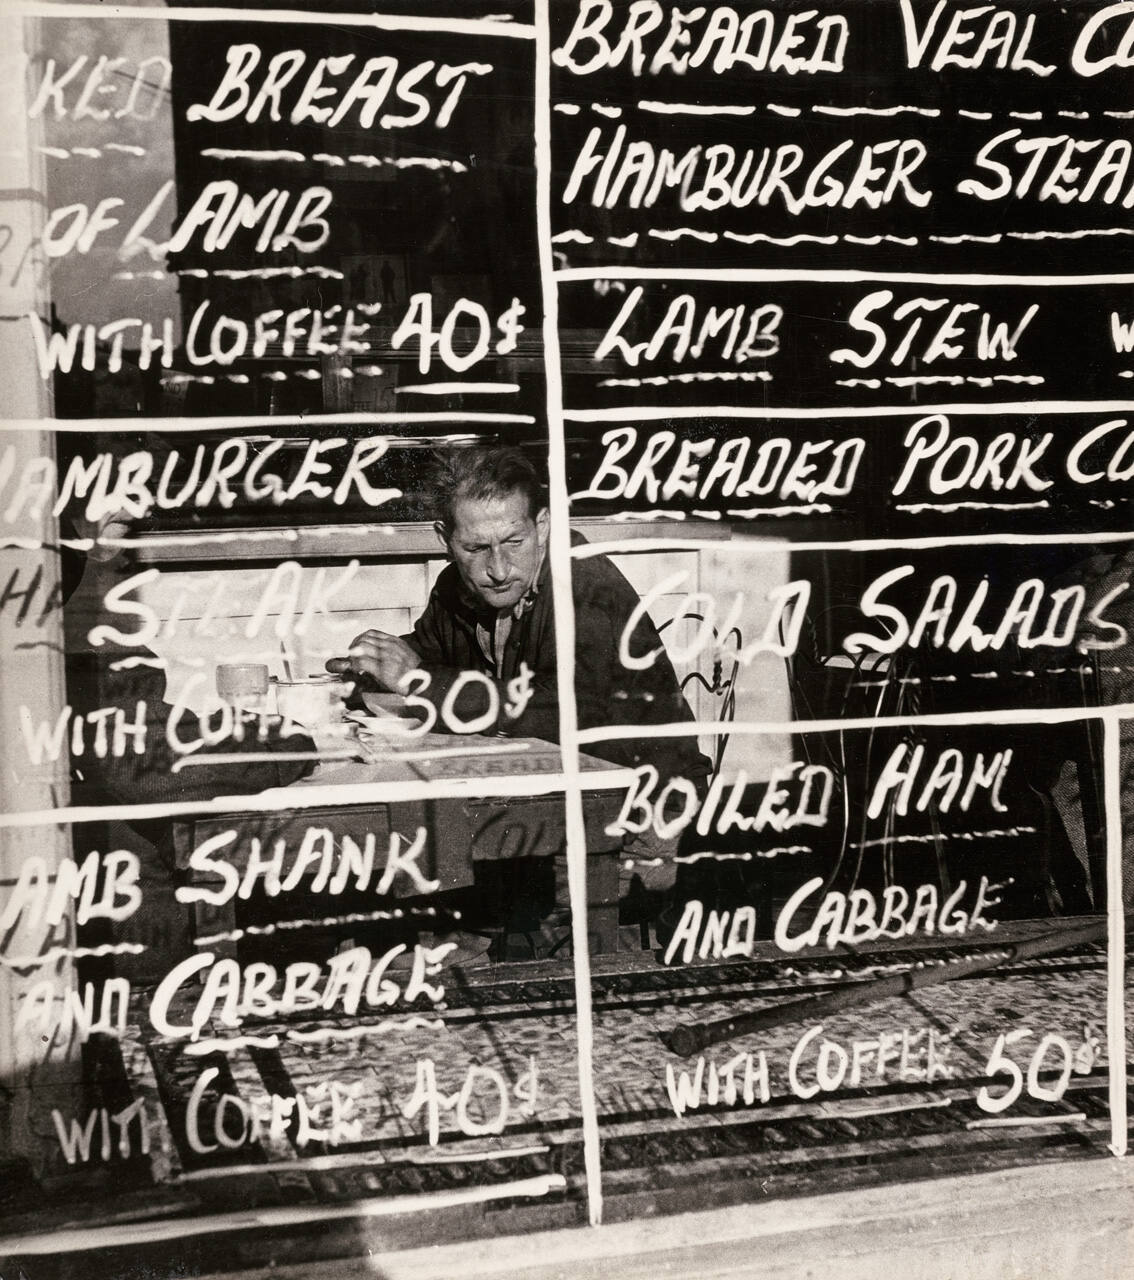 KED BREAST
OF LAMB
WITH COFFEE 40¢
HAMBURGER
STEAK
WITH COFFEE 30¢
AMB SHANK
AND CABBAGE
WITH COFFEE 40¢
BREADED VEAL CU
HAMBURGER STEA
LAMB STEW W
BREADED PORK CO
COLD SALADS
BOILED HAM
AND CABBAGE
WITH COFFEE 50¢